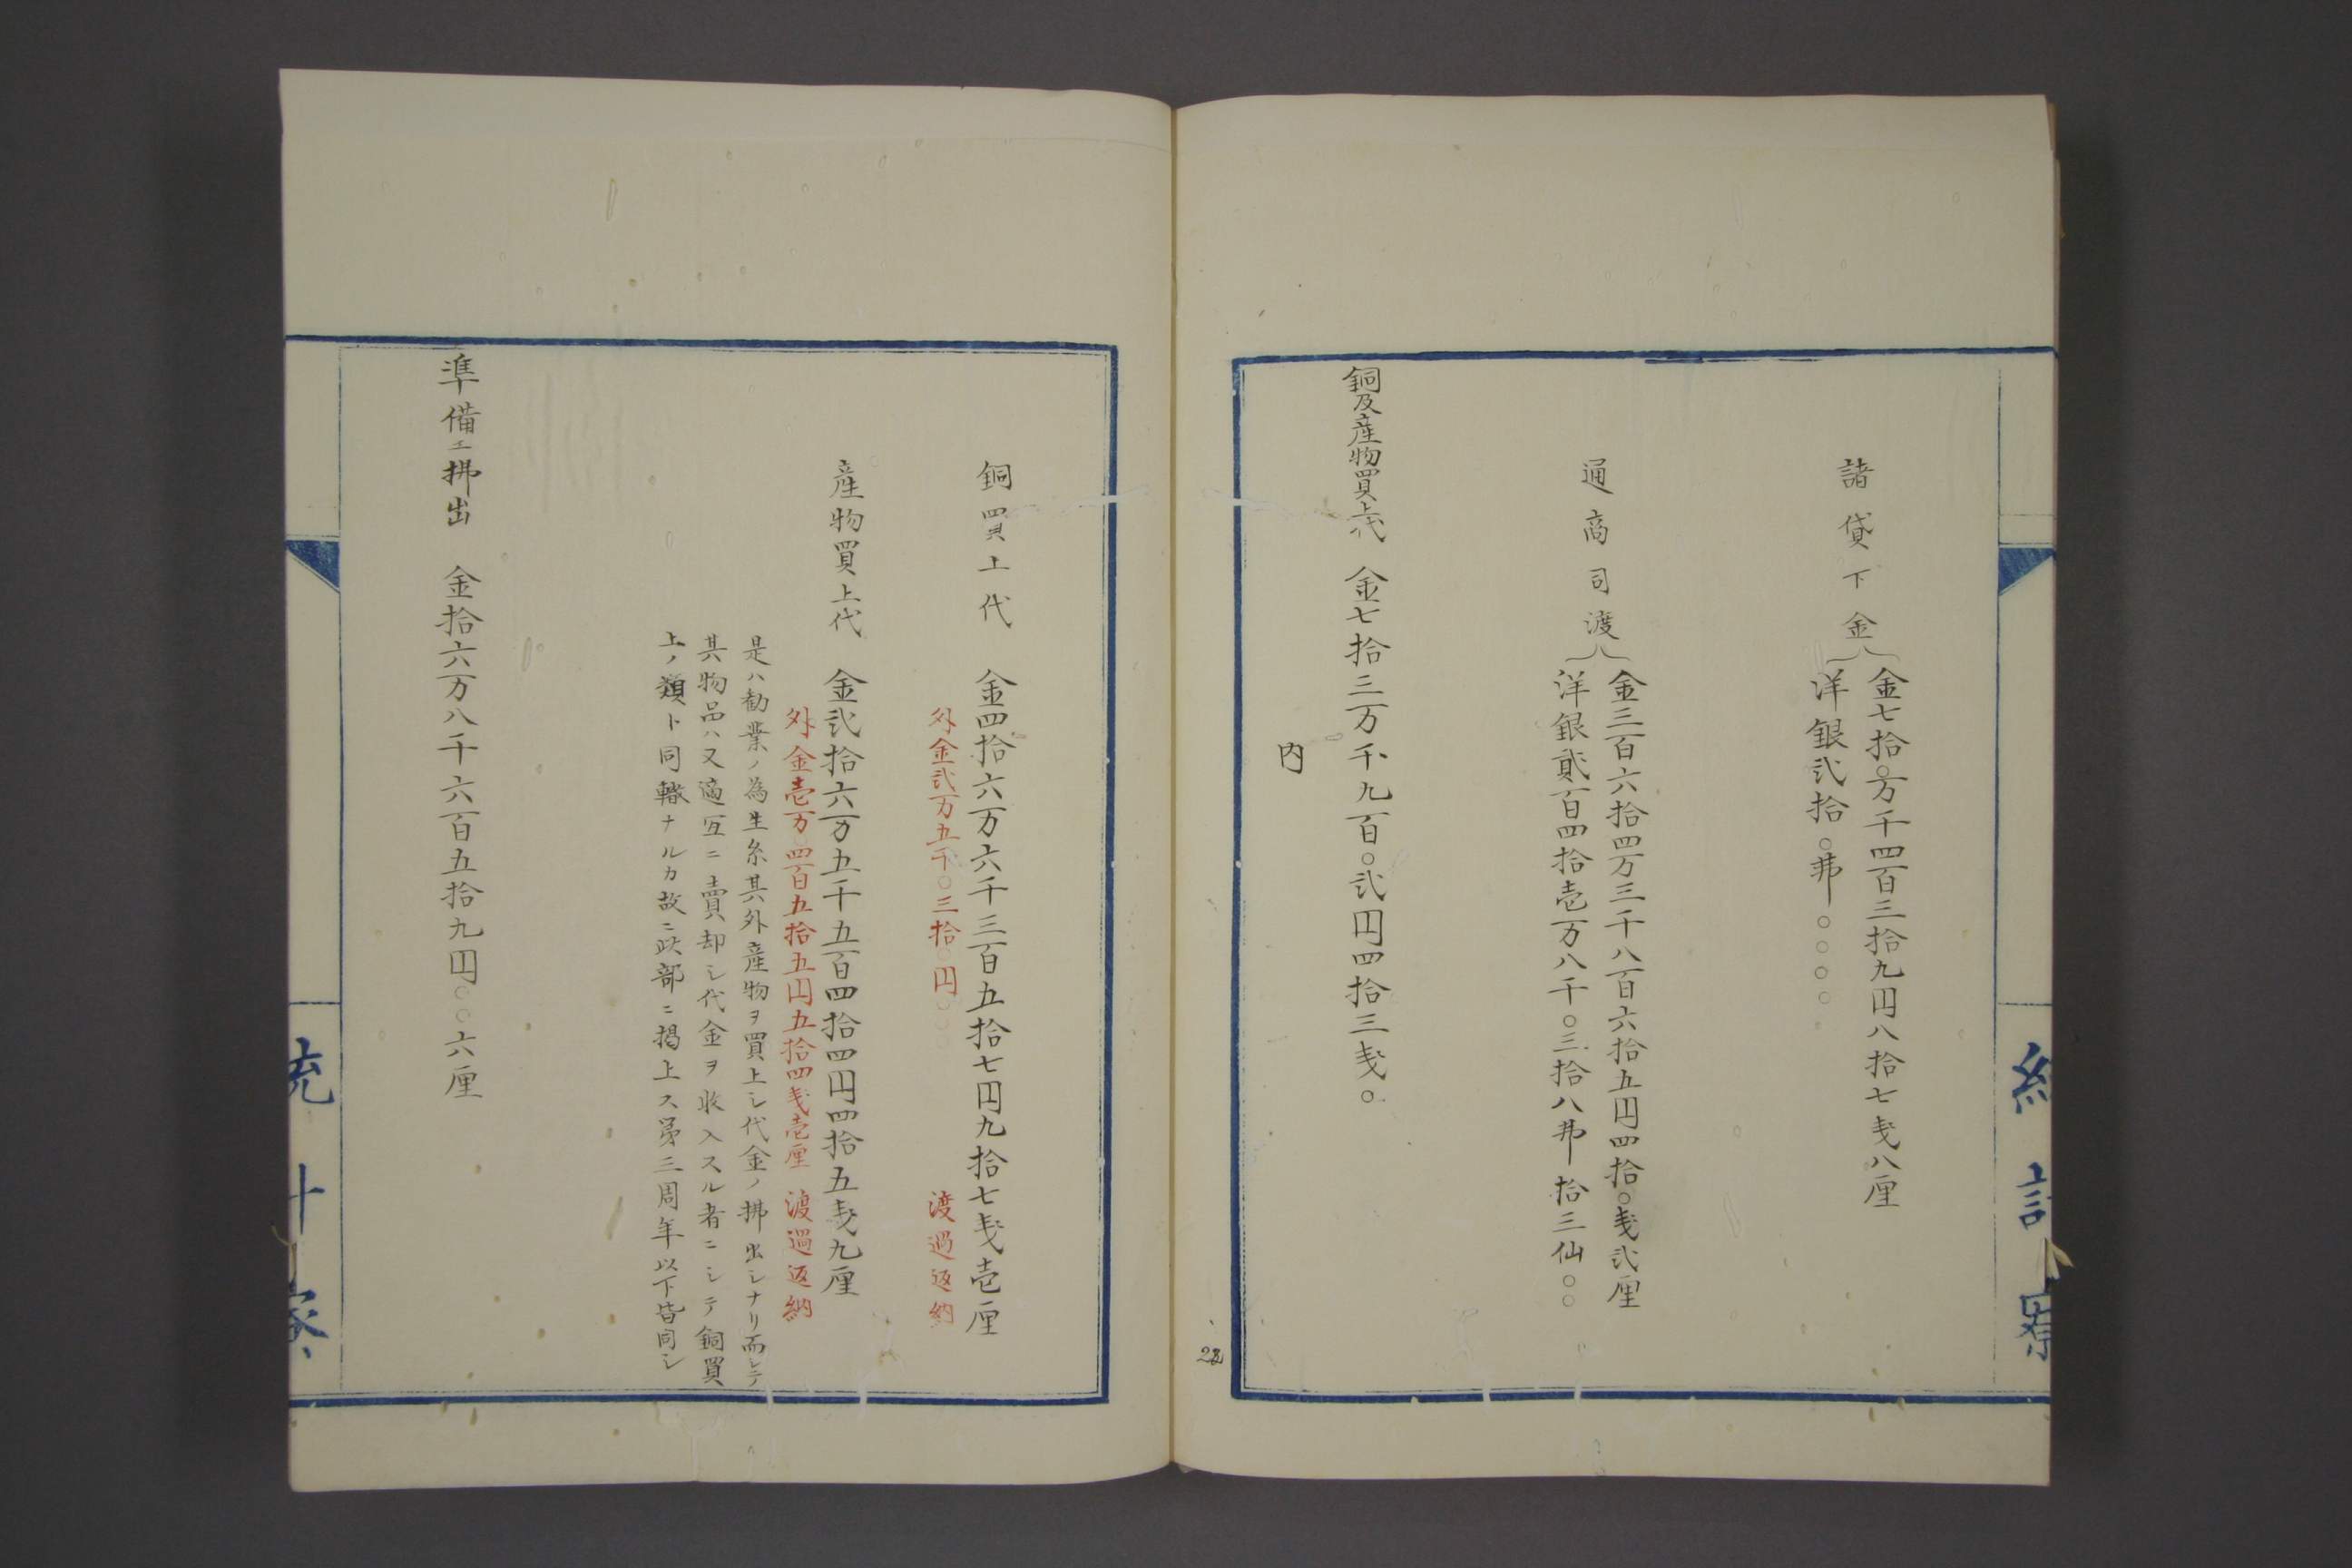 諸貸下金
金七拾〇万千四百三拾九円八拾七戔八厘
洋銀弐拾〇弗〇〇〇〇
通商司渡
金三百六拾四万三千八百六拾五円四拾〇戔弐厘
洋銀貮百四拾壱万八千〇三拾八弗拾三仙〇〇
銅及産物買上代 金七拾三万千九百〇弐円四拾三戔〇
内
22
銅買上代 金四拾六万六千三百五拾七円九拾七戔壱厘
外金弐万五千〇三拾〇円〇〇〇 渡過返納
産物買上代 金弐拾六万五千五百四拾四円四拾五戔九厘
外金壱万〇四百五拾五円五拾四戔壱厘 渡過返納
是ハ勧業ノ為生糸其外産物ヲ買上シ代金ノ拂出シナリ而シテ
其物品ハ又適宜ニ賣却シ代金ヲ收入スル者ニシテ銅買
上ノ類ト同轍ナルカ故ニ此部ニ掲上ス第三周年以下皆同シ
準備エ拂出 金拾六万八千六百五拾九円〇〇六厘
統計寮